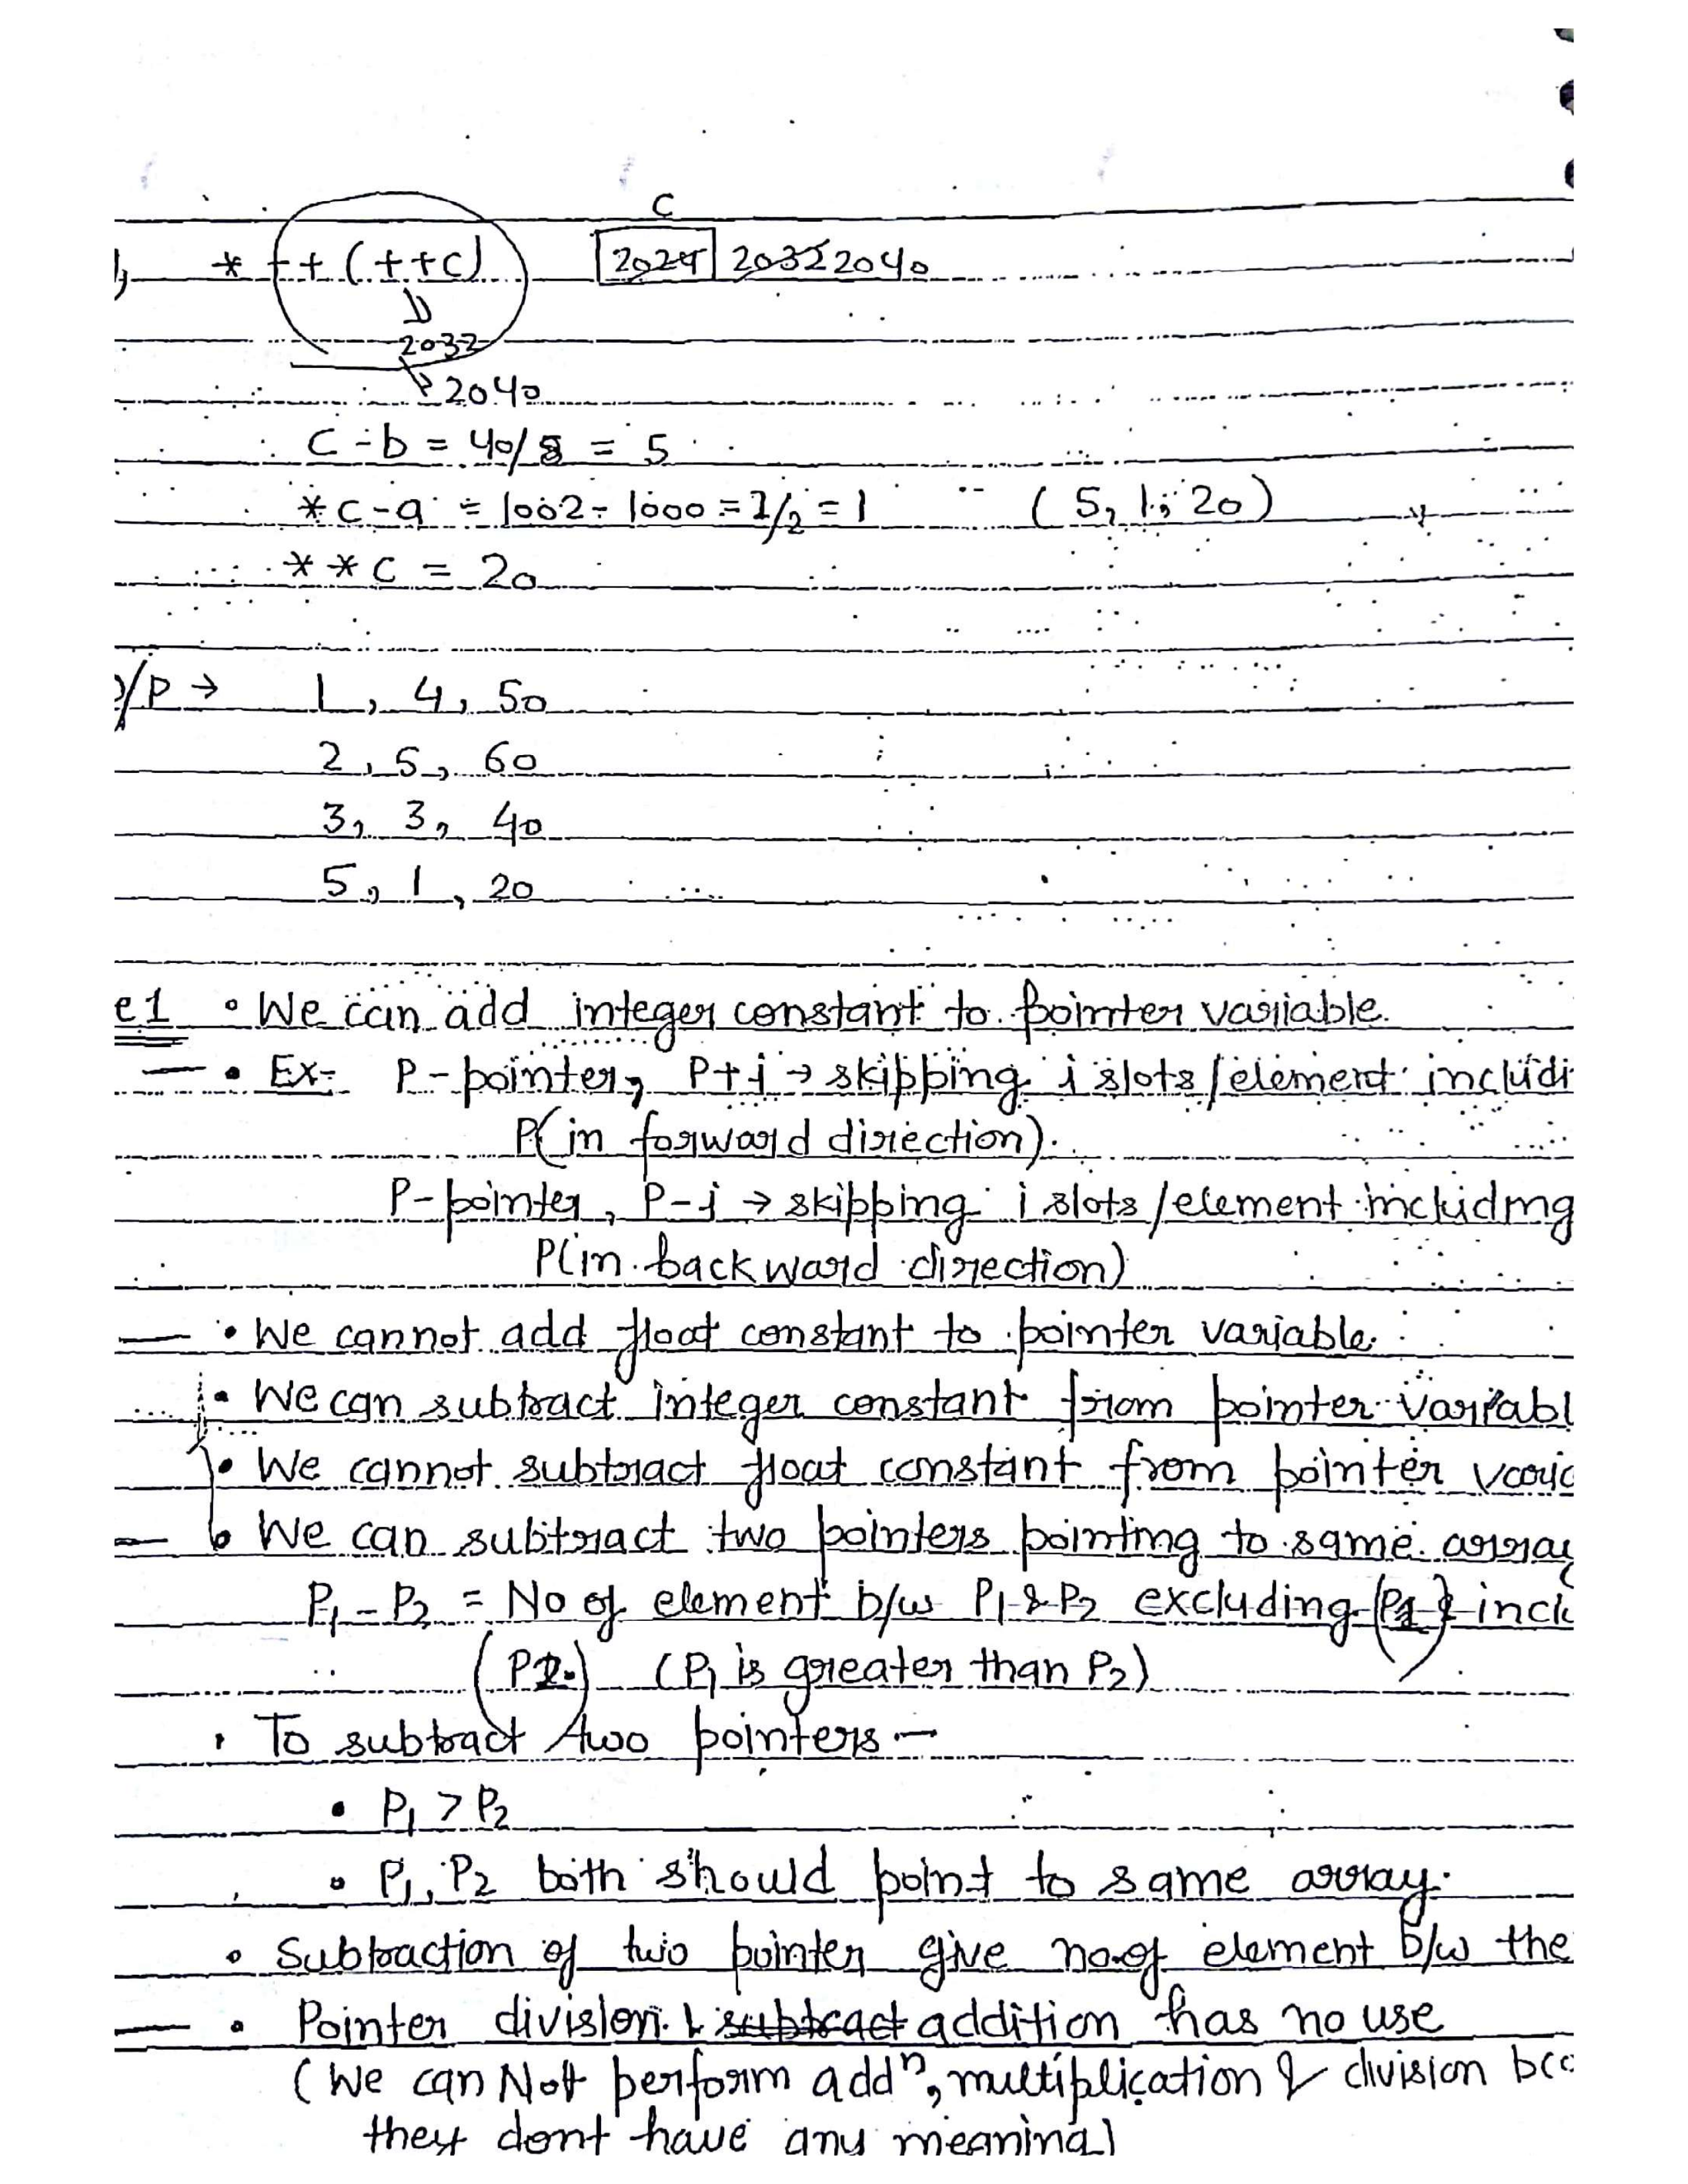 C
* ++(++c) 2024 2032 2040
2032
2040
c-b = 40/8 = 5
*c-a = 1002- 1000 = 2/2 = 1 (5, 1, 20)
**c = 20
/P → 1, 4, 50
2, 5, 60
3, 3, 40
5, 1, 20
e1 • We can add integer constant to pointer variable.
• Ex- P-pointer, P+i → skipping i slots/element includi
P(in forward direction).
P-pointer, P-i → skipping i slots/element including
P(in backward direction)
• We cannot add float constant to pointer variable.
• We can subtract integer constant from pointer variabl
• We cannot subtract float constant from pointer varia
• We can subtract two pointers pointing to same array
P1-P2 = No of element b/w P1 & P2 excluding (P1) & inclu
(P2) (P1 is greater than P2)
• To subtract two pointers-
• P1 > P2
• P1, P2 both should point to same array.
• Subtraction of two pointer give no.of element b/w the
• Pointer division & subtract addition has no use
(We can Not perform addn, multiplication & division bco
they dont have any meaning)